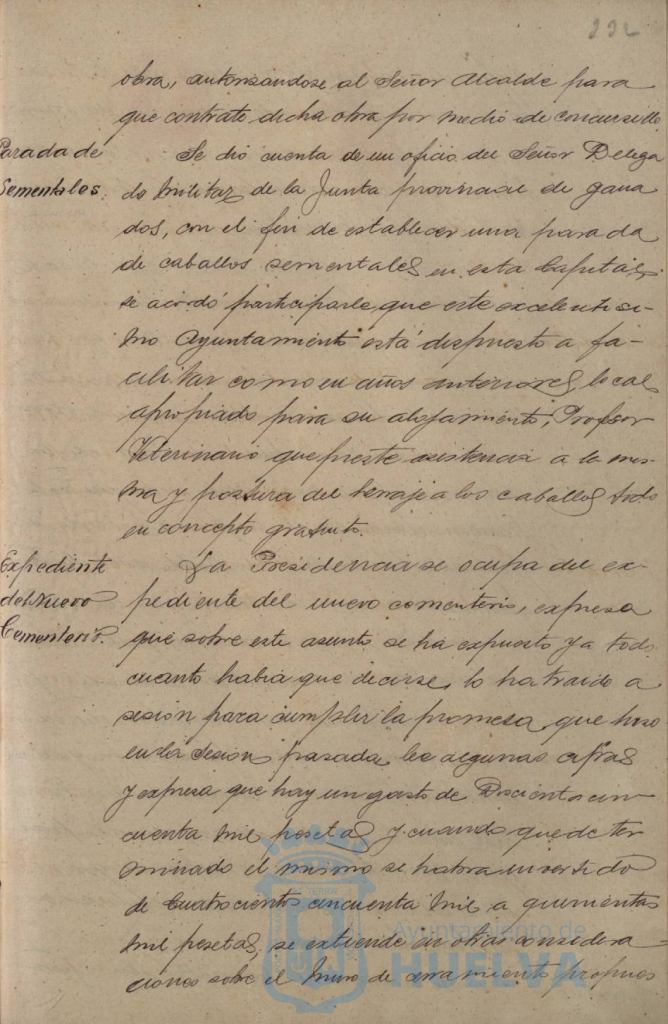 232
obra, autorizandose al Señor Alcalde para
que contrate dicha obra por medio de concursillo
Parada de
Sementales.
Se dió cuenta de un oficio del Señor Delega
do Militar de la Junta provincial de gana
dos, con el fin de establecer una parada
de caballos sementales en esta Capital,
se acordó participarle que este excelentisi-
mo Ayuntamiento está dispuesto a fa-
cilitar como en años anteriores, local
apropiado para su alojamiento, Profesor
Veterinario que preste asistencia a la mis-
ma y postura del herraje a los caballos todo
en concepto gratuito.
Expediente
del Nuevo
Cementerio.
La Presidencia se ocupa del ex-
pediente del nuevo cementerio, expresa
que sobre este asunto se ha expuesto ya todo
cuanto habia que decirse, lo ha traido a
sesión para cumplir la promesa que hizo
en la sesion pasada, lee algunas cifras
y expresa que hay un gasto de Doscienta cin
cuenta mil pesetas y cuando quede ter
minado el mismo se habra invertido
de Cuatrocientas cincuenta mil a quinientas
mil pesetas, se extiende en otras considera
ciones sobre el muro de cerramiento propues
Ayuntamiento de
HUELVA